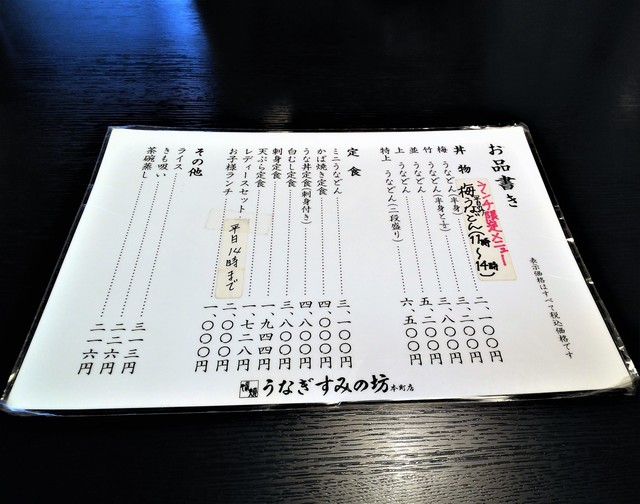 表示価格はすべて税込価格です
お品書き
ランチ限定メニュー
平日梅うなどん(11時～14時)
丼物
梅 うなどん(半身) 二、一〇〇円
竹 うなどん(半身と 三、二〇〇円
並 うなどん 三、八〇〇円
上 うなどん 五、二〇〇円
特上 うなどん(二段盛り) 六、五〇〇円
定食
ミニうなどん 三、一〇〇円
かば焼き定食 四、〇〇〇円
うな丼定食(刺身付き) 四、八〇〇円
白むし定食 三、八〇〇円
刺身定食 一、九四四円
天ぷら定食 一、七二八円
レディースセット 二、〇〇〇円
平日14時まで
お子様ランチ 一、〇〇〇円
その他
ライス
きも吸い
茶碗蒸し
うなぎすみの坊 本町店